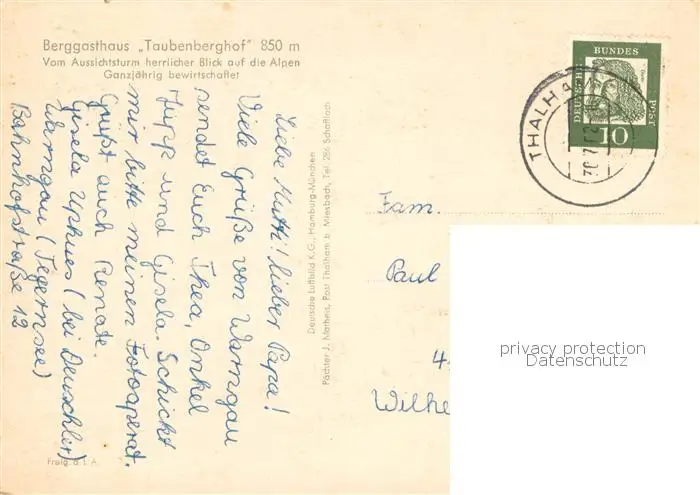 Berggasthaus „Taubenberghof" 850 m
Vom Aussichtsturm herrlicher Blick auf die Alpen
Ganzjährig bewirtschaftet
Liebe Mutti! lieber Papa!
Viele Grüße von Warngau
sendet Euch Thea, Onkel
Jupp und Gisela. Schickt
mir bitte meinen Fotoaperat.
Grüßt auch Renate.
Gisela (bei Deuschler)
Warngau (Tegernsee)
Bahnhofstraße 12
Deutsche Luftbild K.G., Hamburg-München
Pächter J. Matheis, Post Thalham b. Miesbach, Tel. 286 Schaftlach
Freig. d. L. A.
THALHA
DEUTSCHE
BUNDES
POST
10
Fam.
Paul
Wilhe
privacy protection
Datenschutz